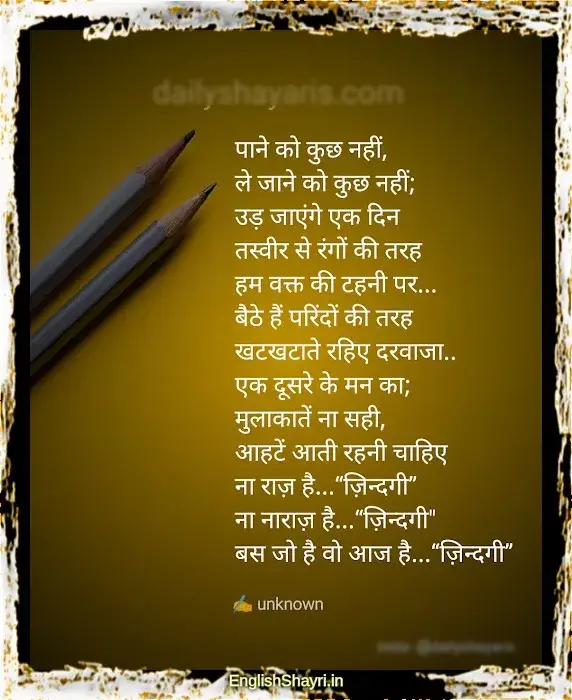 dailyshayaris.com
पाने को कुछ नहीं,
ले जाने को कुछ नहीं;
उड़ जाएंगे एक दिन
तस्वीर से रंगों की तरह
हम वक्त की टहनी पर...
बैठे हैं परिंदों की तरह
खटखटाते रहिए दरवाजा..
एक दूसरे के मन का;
मुलाकातें ना सही,
आहटें आती रहनी चाहिए
ना राज़ है...“ज़िन्दगी”
ना नाराज़ है...“ज़िन्दगी"
बस जो है वो आज है...“ज़िन्दगी”
✍️ unknown
@dailyshayaris
EnglishShayri.in